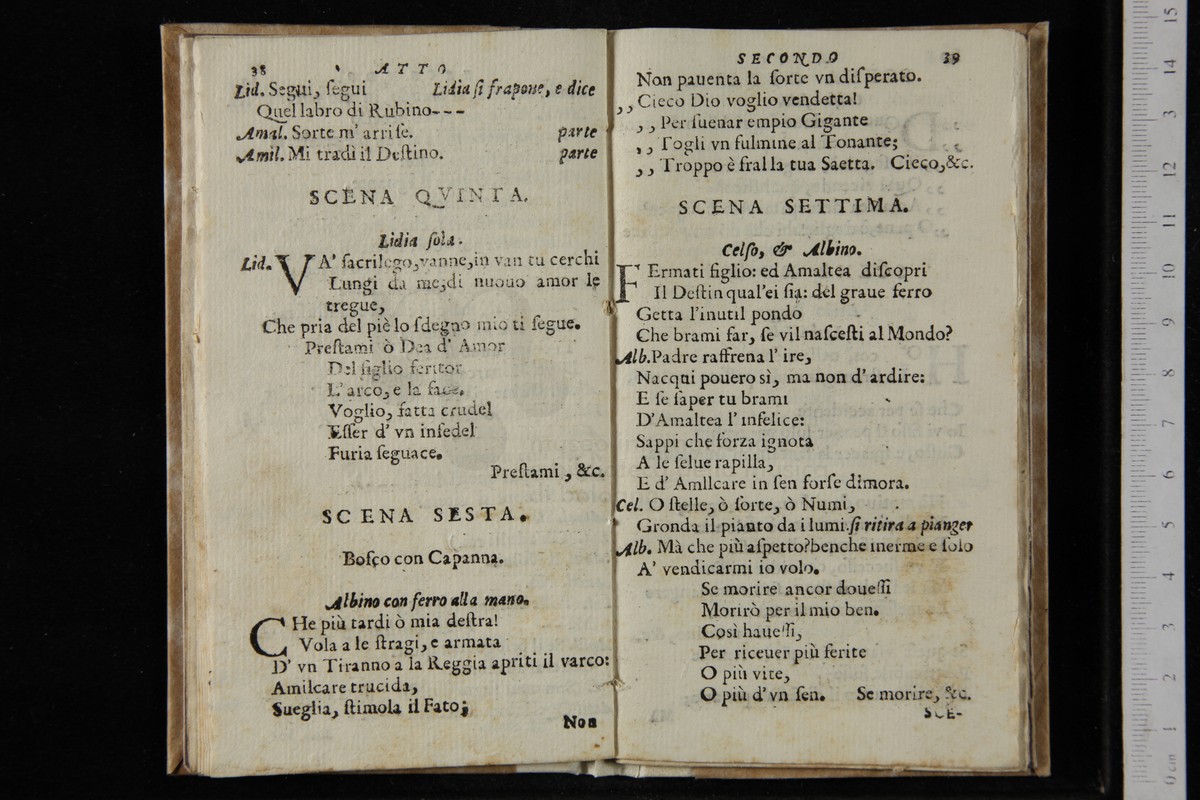 38 ATTO
Lid. Segui, ſegui Lidia ſi frapone, e dice
Quel labro di Rubino---
Amal. Sorte m' arriſe. parte
Amil. Mi tradì il Deſtino. parte
SCENA QVINTA.
Lidia ſola.
Lid. VA' ſacrilego, vanne, in van tu cerchi
Lungi da me, di nuouo amor le
tregue,
Che pria del piè lo ſdegno mio ti ſegue.
Preſtami ò Dea d' Amor
Del figlio feritor
L' arco, e la face,
Voglio, fatta crudel
Eſſer d' vn infedel
Furia ſeguace.
Preſtami, &c.
SCENA SESTA.
Boſco con Capanna.
Albino con ferro alla mano.
CHe più tardi ò mia deſtra!
Vola a le ſtragi, e armata
D' vn Tiranno a la Reggia apriti il varco:
Amilcare trucida,
Sueglia, ſtimola il Fato;
Non
SECONDO 39
Non pauenta la ſorte vn diſperato.
,, Cieco Dio voglio vendetta!
,, Per ſuenar empio Gigante
,, Togli vn fulmine al Tonante;
,, Troppo è fral la tua Saetta. Cieco, &c.
SCENA SETTIMA.
Celſo, & Albino.
FErmati figlio: ed Amaltea diſcopri
Il Deſtin qual'ei ſia: del graue ferro
Getta l'inutil pondo
Che brami far, ſe vil naſceſti al Mondo?
Alb. Padre raffrena l' ire,
Nacqui pouero sì, ma non d' ardire:
E ſe ſaper tu brami
D'Amaltea l' infelice:
Sappi che forza ignota
A le ſelue rapilla,
E d' Amilcare in ſen forſe dimora.
Cel. O ſtelle, ò ſorte, ò Numi,
Gronda il pianto da i lumi. ſi ritira a pianger
Alb. Mà che più aſpetto? benche inerme e ſolo
A' vendicarmi io volo.
Se morire ancor doueſſi
Morirò per il mio ben.
Così haueſſi,
Per riceuer più ferite
O più vite,
O più d' vn ſen. Se morire, &c.
SCE-